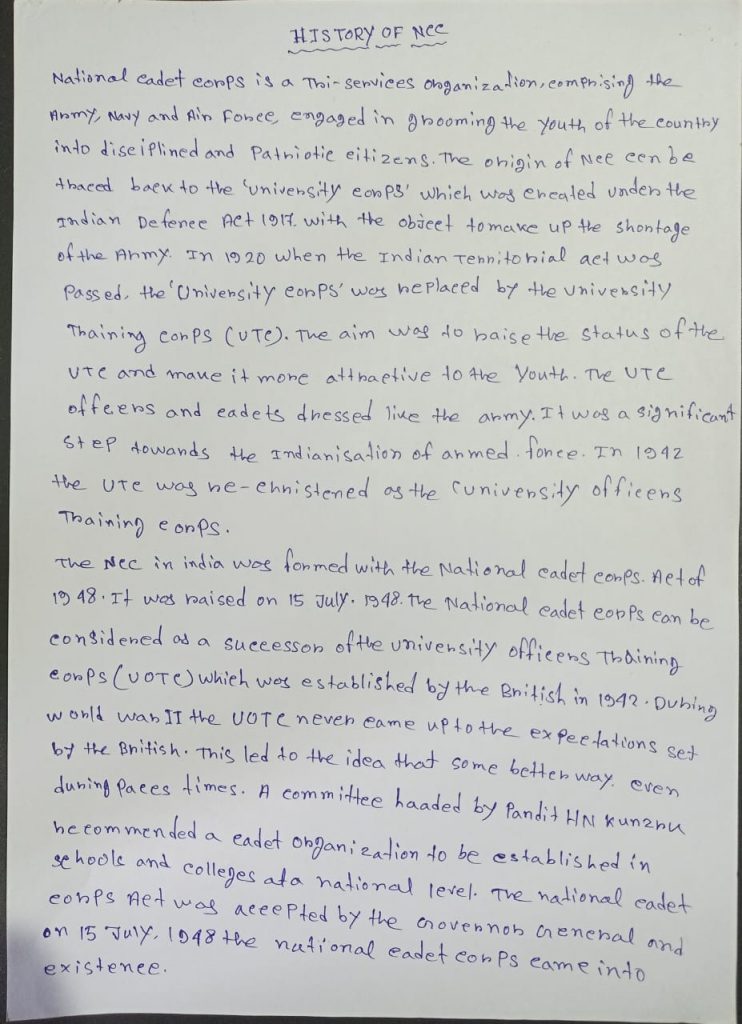 HISTORY OF NCC
National cadet corps is a Tri-services organization, comprising the
Army, Navy and Air Force, engaged in grooming the youth of the country
into disciplined and Patriotic citizens. The origin of Ncc cen be
traced back to the 'university corps' which was created under the
Indian Defence Act 1917. with the object to make up the shortage
of the Army. In 1920 when the Indian Territorial act was
Passed, the 'University corps' was replaced by the university
Training corps (UTC). The aim was to raise the status of the
UTC and make it more attractive to the Youth. The UTC
offcers and cadets dressed like the army. It was a significant
step towards the Indianisation of armed force. In 1942
the UTC was re-christened as the (university officers
Training corps.
The Ncc in india was formed with the National cadet corps. Act of
1948. It was raised on 15 July. 1948. The National cadet corps can be
considered as a successor of the university officers Training
corps (UOTC) which was established by the British in 1942. During
world war II the UOTC never came up to the expectations set
by the British. This led to the idea that some better way. even
during Paces times. A committee haaded by Pandit HN Kunzru
recommended a cadet organization to be established in
schools and colleges at a national level. The national cadet
corps Act was accepted by the Governor General and
on 15 July, 1948 the national cadet corps came into
existence.